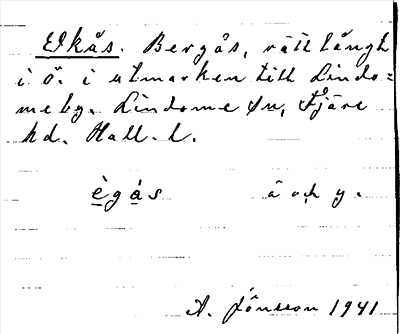 Ekås. Bergås, rätt långt
i ö. i utmarken till Lindo=
meby. Lindome sn, Fjäre
hd. Hall. l.
ègás ä och y.
A. Jönsson 1941